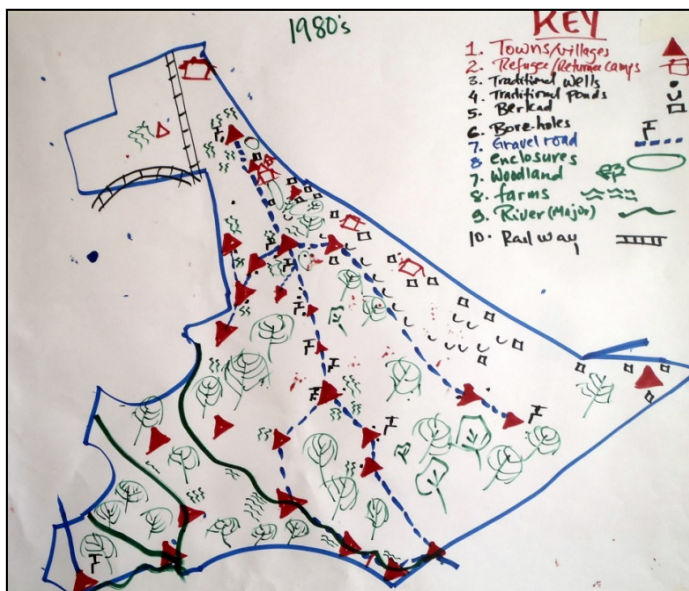 1980's
KEY
1. Towns/villages
2. Refugee/Returnee Camps
3. Traditional wells
4. Traditional Ponds
5. Berkad
6. Bore-holes
7. Gravel road
8 enclosures
7. Woodland
8. farms
9. River (Major)
10. Rail way